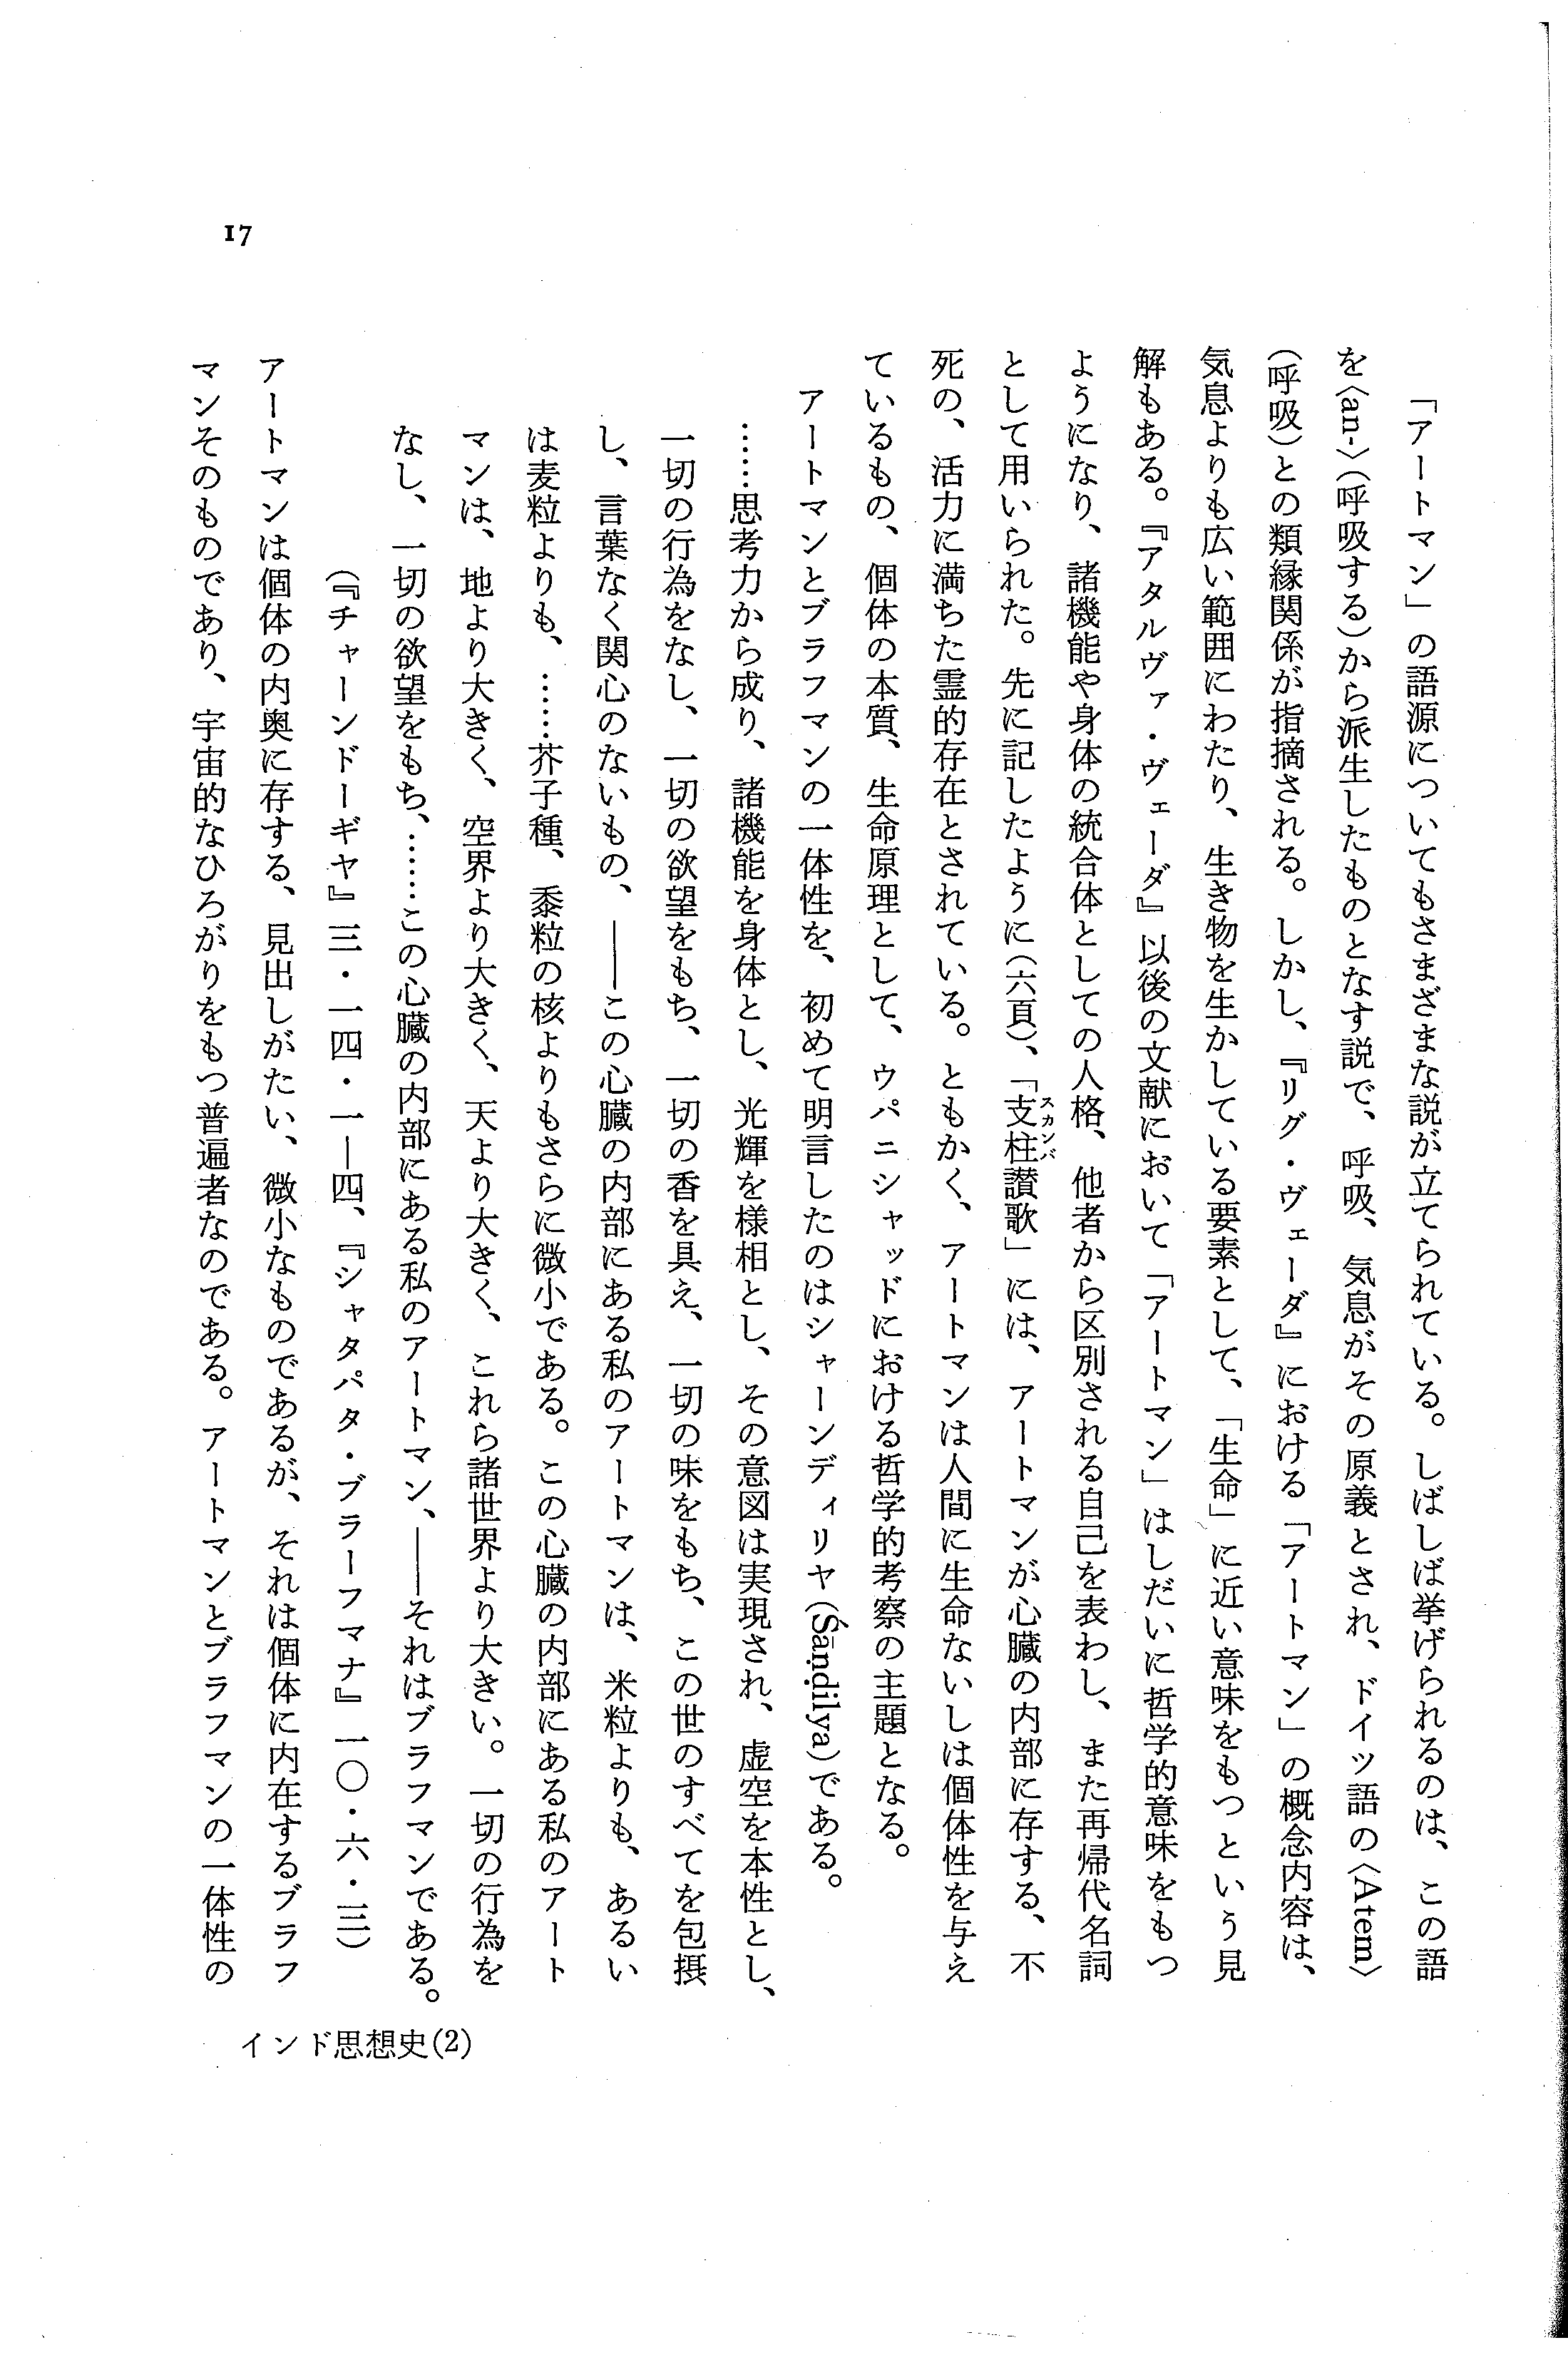 「アートマン」の語源についてもさまざまな説が立てられている。しばしば挙げられるのは、この語
を〈an-〉(呼吸する)から派生したものとなす説で、呼吸、気息がその原義とされ、ドイツ語の〈Atem〉
(呼吸)との類縁関係が指摘される。しかし、『リグ・ヴェーダ』における「アートマン」の概念内容は、
気息よりも広い範囲にわたり、生き物を生かしている要素として、「生命」に近い意味をもつという見
解もある。『アタルヴァ・ヴェーダ』以後の文献において「アートマン」はしだいに哲学的意味をもつ
ようになり、諸機能や身体の統合体としての人格、他者から区別される自己を表わし、また再帰代名詞
として用いられた。先に記したように(六頁)、「支柱讃歌」には、アートマンが心臓の内部に存する、不
スカンバ
死の、活力に満ちた霊的存在とされている。ともかく、アートマンは人間に生命ないしは個体性を与え
ているもの、個体の本質、生命原理として、ウパニシャッドにおける哲学的考察の主題となる。
アートマンとブラフマンの一体性を、初めて明言したのはシャーンディリヤ(Śāṇḍilya)である。
……思考力から成り、諸機能を身体とし、光輝を様相とし、その意図は実現され、虚空を本性とし、
一切の行為をなし、一切の欲望をもち、一切の香を具え、一切の味をもち、この世のすべてを包摂
し、言葉なく関心のないもの、――この心臓の内部にある私のアートマンは、米粒よりも、あるい
は麦粒よりも、……芥子種、黍粒の核よりもさらに微小である。この心臓の内部にある私のアート
マンは、地より大きく、空界より大きく、天より大きく、これら諸世界より大きい。一切の行為を
なし、一切の欲望をもち、……この心臓の内部にある私のアートマン、――それはブラフマンである。
(『チャーンドーギヤ』三・一四・一―四、『シャタパタ・ブラーフマナ』一〇・六・三)
アートマンは個体の内奥に存する、見出しがたい、微小なものであるが、それは個体に内在するブラフ
マンそのものであり、宇宙的なひろがりをもつ普遍者なのである。アートマンとブラフマンの一体性の
17
インド思想史(2)